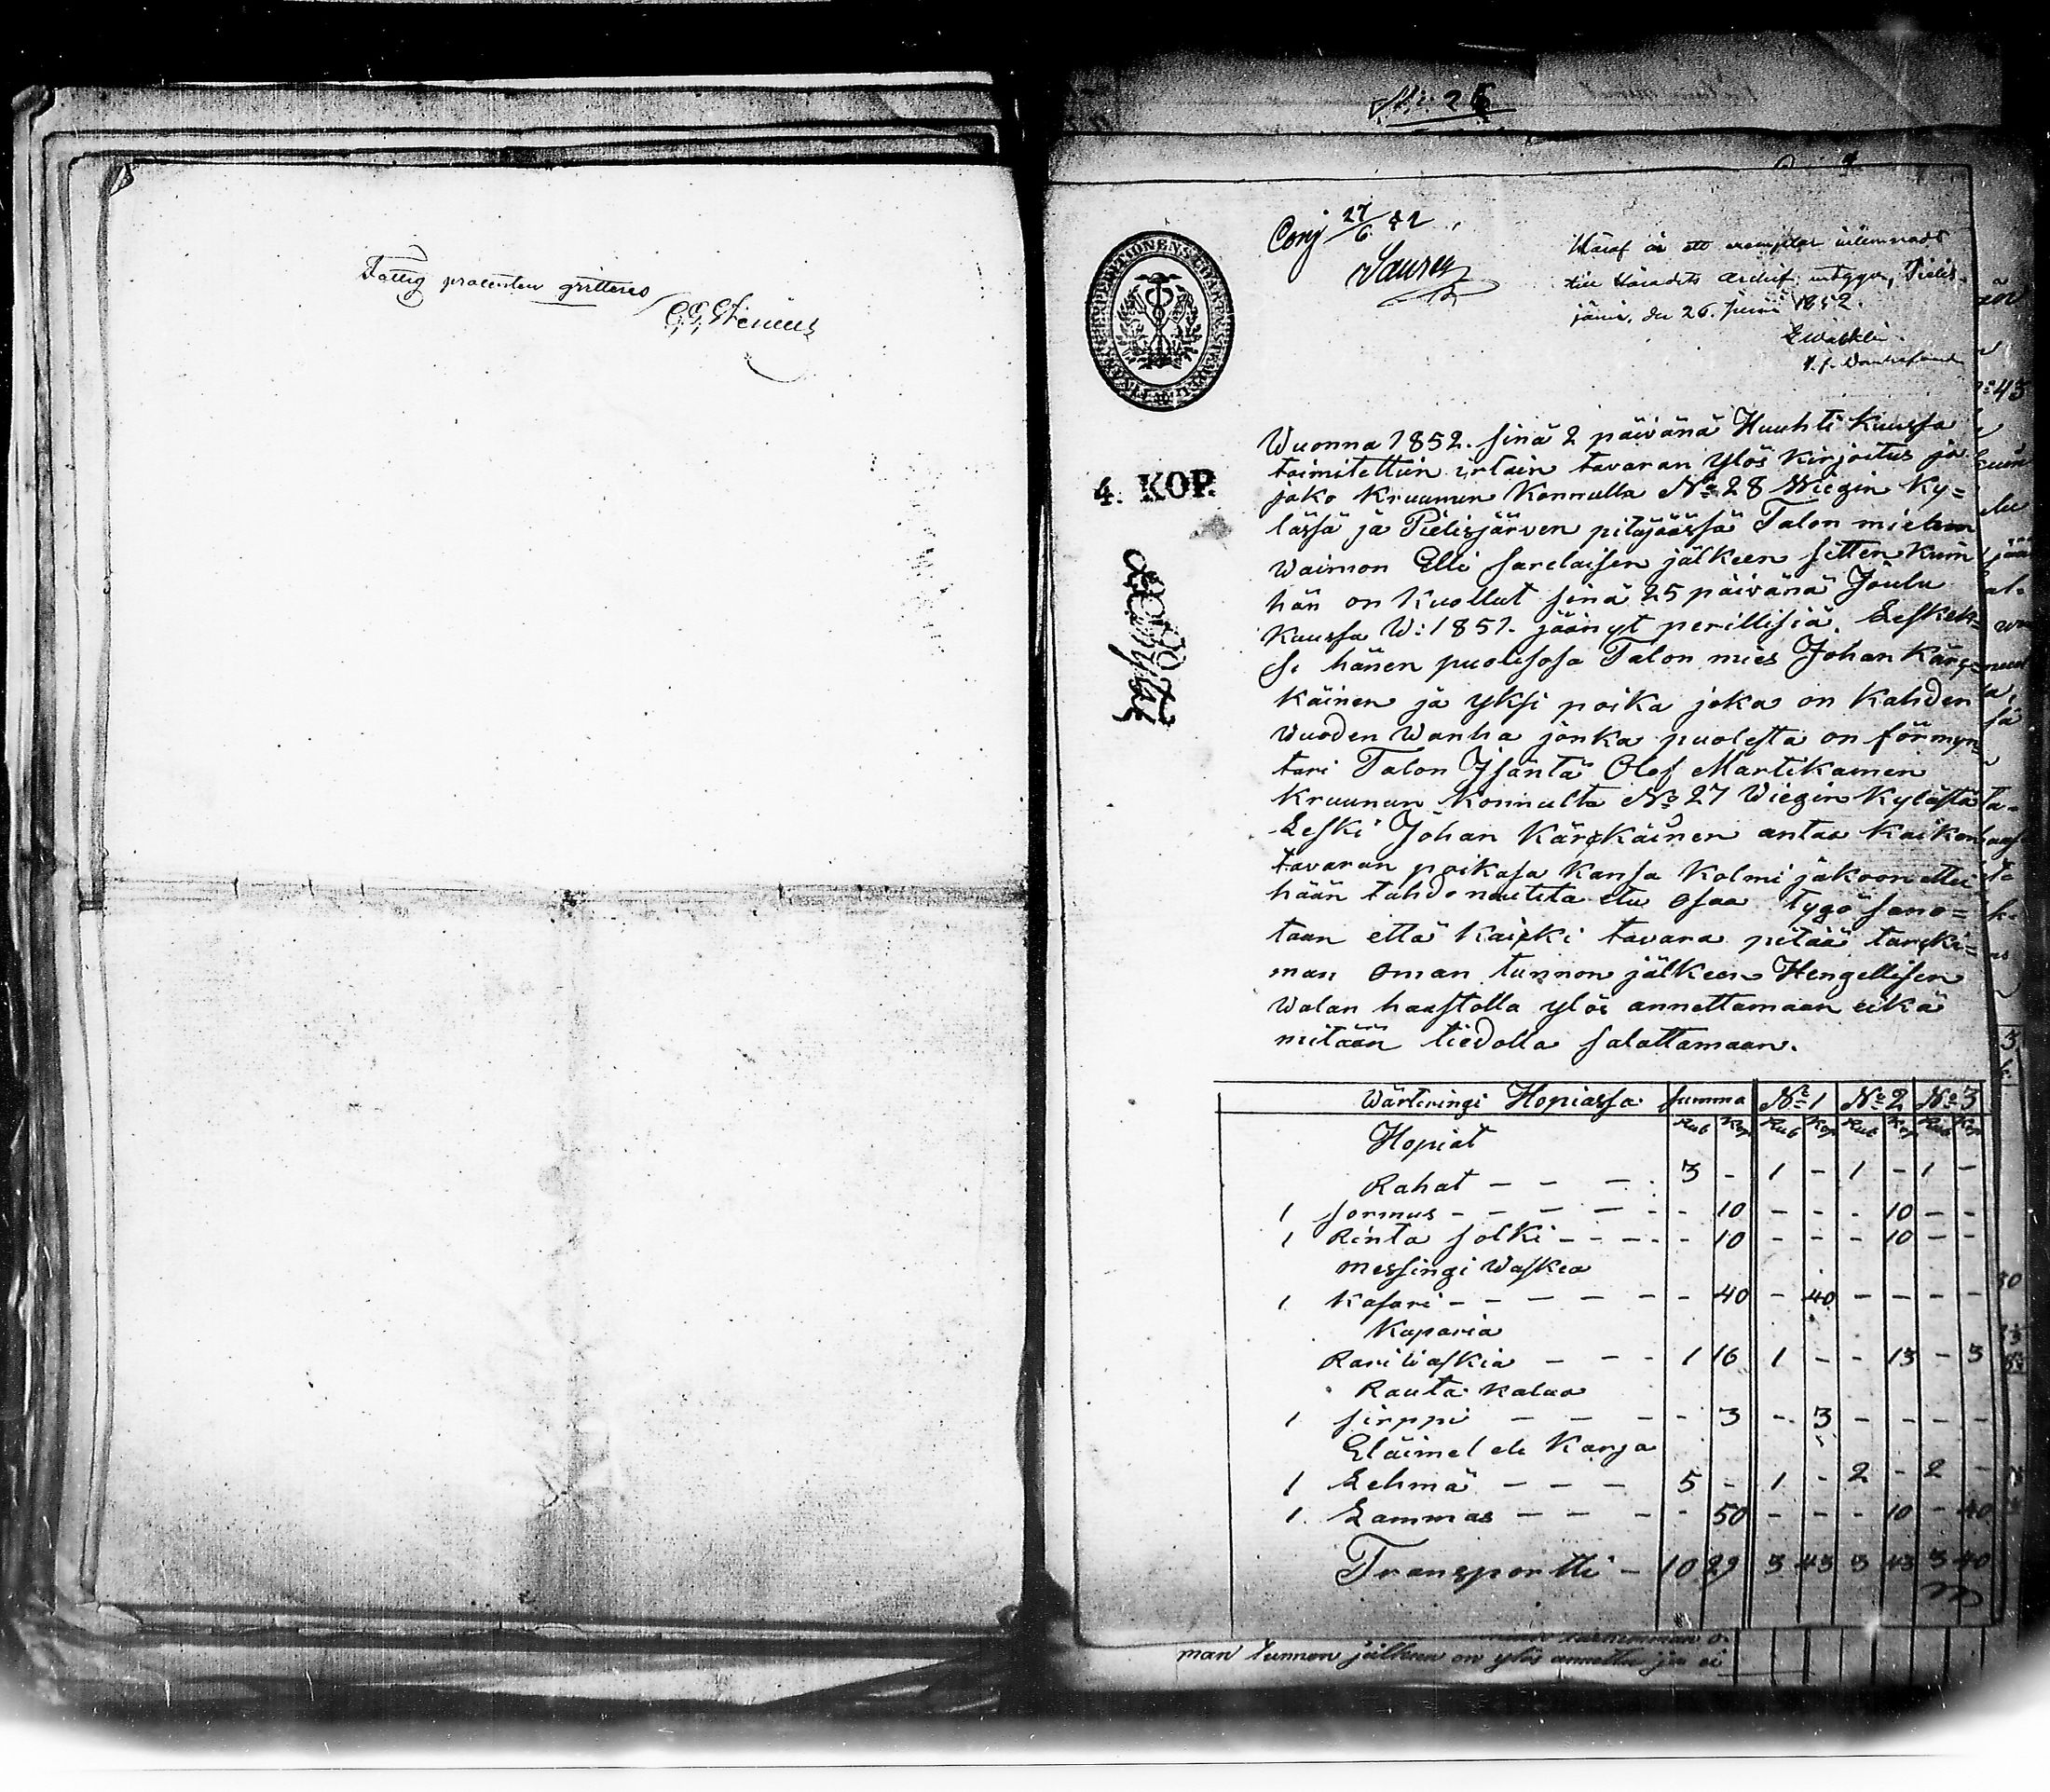 Fattig procenten qvitteras
C. G. Stenius
No 26
Conj 27/6 52
Häraf är ett exemplar inlemnadt
till Häradets Archif intygar, Pielis-
järvi, den 26. Junii 1852.
4. KOP.
Wuonna 1852. sinä 2 päivänä Huuhti Kuussa
toimitettiin irtain tavaran ylös kirjoitus ja
jako Kruunun Konnulla No 28 Wiegin Ky=
lässä ja Pielisjärven pitäjäässä Talon miehen
Waimon Elli Sarelaisen jälkeen sitten Kuin
hän on Kuollut sinä 25 päivänä Joulu
Kuussa W: 1851. jäänyt perillisiä. Leskek=
si hänen puolisosa Talon mies Johan Kärs=
käinen ja yksi poika joka on Kahden
Wuoden Wanha jonka puolesta on förmyn=
tari Talon Isäntä Olof Martikainen
Kruunun Konnulta No 27 Wiegin Kylästä
Leski Johan Kärskäinen antaa Kaiken
tavaran poikasa Kansa Kolmi jakoon ettei
hään tahdo nautita etu osaa Tygö sano=
taan että Kaicki tavara pitää tarcki=
man oman tunnon jälkeen Hengellisen
Walan haastolla ylös annettamaan eikä
mitään tiedolla salattamaan.
Wärteringi Hopiassa Summa No 1 No 2 No 3
Rub Kop Rub Kop Rub Kop Rub Kop
Hopiat
Rahat - - - 3 - 1 - 1 - 1 -
1 Sormus - - - - - - 10 - - - 10 - -
1 Rinta Solki - - - - - 10 - - - 10 - -
Messingi Waskea
1 Kasari - - - - - - 40 - 40 - - - -
Kuparia
Rari Waskia - - - 1 16 1 - - 13 - 3
Rauta Kalua
1 Sirppi - - - - 3 - 3 - - - -
Eläimet eli Karja
1 Lehmä - - - 5 - 1 - 2 - 2 -
1 Lammas - - - - 50 - - - 10 - 40
Transportti - 10 29 3 43 3 43 3 40
man tunnon jälkeen on ylös annettu ja ei